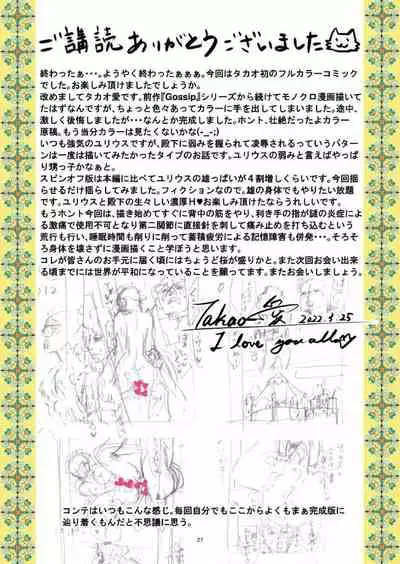 ご講読ありがとうございました
終わったぁ・・・。ようやく終わったぁぁぁ。今回はタカオ初のフルカラーコミック
でした。お楽しみ頂けましたでしょうか。
改めましてタカオ愛です。前作『Gossip』シリーズから続けてモノクロ漫画描いて
たはずなんですが、ちょっと色々あってカラーに手を出してしまいました。途中、
激しく後悔しましたが・・・なんとか完成しました。ホント、壮絶だったよカラー
原稿。もう当分カラーは見たくないかな(-_-;)
いつも強気のユリウスですが、殿下に弱みを握られて凌辱されるっていうパター
ンは一度は描いてみたかったタイプのお話です。ユリウスの弱みと言えばやっぱ
り甥っ子かなぁと。
スピンオフ版は本編に比べてユリウスの雄っぱいが4割増しくらいです。今回揺
らせるだけ揺らしてみました。フィクションなので。雄の身体でもやりたい放題
です。ユリウスと殿下の生々しい濃厚H♥お楽しみ頂けたならうれしいです。
もうホント今回は、描き始めてすぐに背中の筋をやり、利き手の指が謎の炎症によ
る激痛で使用不可となり第二関節に直接針を刺して痛み止めを打ち込むという
荒行も行い、睡眠時間も削りに削って蓄積疲労による記憶障害も併発・・・。そろそ
ろ身体を壊さずに漫画描くこと学ぼうと思います。
コレが皆さんのお手元に届く頃にはちょうど桜が盛りかと。また次回お会い出来
る頃までには世界が平和になっていることを願ってます。またお会いしましょう。
Takao 愛 2022.3.25
I love you all♡
コンテはいつもこんな感じ。毎回自分でもここからよくもまぁ完成版に
辿り着くもんだと不思議に思う。
27